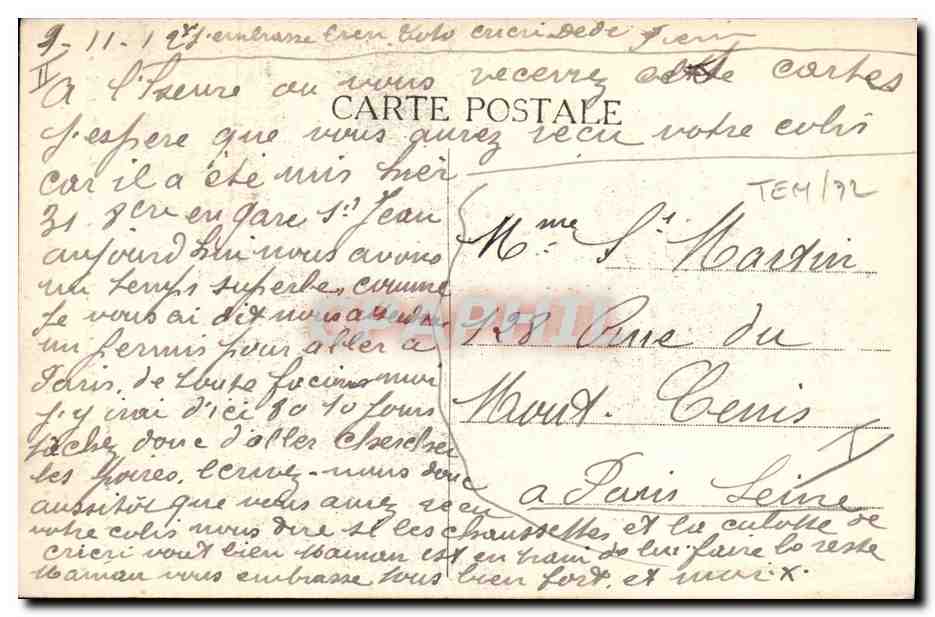 9-11-1921 J'embrasse bien Toto Cricri Dédé
A l'heure ou vous recevrez cette cartes
CARTE POSTALE
j'espere que vous aurez recu votre colis
car il a été mis hier
31. 8bre en gare St Jean
aujourd hui nous avons
un temps superbe, comme
je vous ai dit nous attendons
un permis pour aller a
Paris. de toute facions moi
j'y irai d'ici 8 a 10 jours
tachez donc d'aller chercher
les poires. Ecrivez-nous donc
aussitôt que vous aurez recu
votre colis nous dire si les chaussettes et la culotte de
Cricri vont bien Maman est en train de lui faire la veste
Maman vous embrasse tous bien fort. et moi x.
TEM/72
Mme St. Martin
128 Rue du
Mont. Cenis
a Paris Seine
CPAPHIL